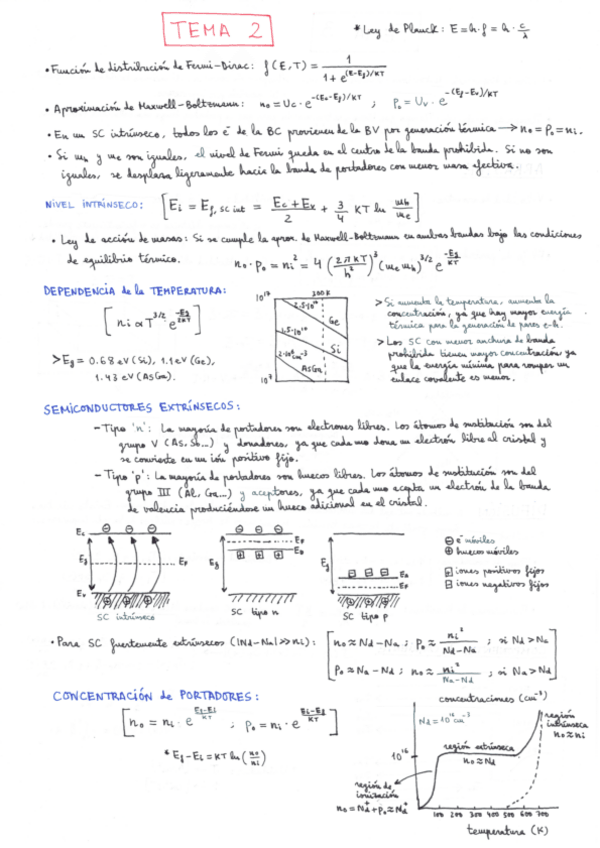 TEMA 2
* Ley de Planck: E = h·f = h · c/λ
• Función de distribución de Fermi-Dirac: f(E,T) = 1 / (1 + e^((E-Ef)/KT))
• Aproximación de Maxwell-Boltzmann: n₀ = Uc · e^(-(Ec-Ef)/KT) ; p₀ = Uv · e^(-(Ef-Ev)/KT)
• En un SC intrínseco, todos los e⁻ de la BC provienen de la BV por generación térmica → n₀ = p₀ = ni.
• Si mh y me son iguales, el nivel de Fermi queda en el centro de la banda prohibida. Si no son
iguales, se desplaza ligeramente hacia la banda de portadores con menor masa efectiva.
NIVEL INTRÍNSECO: [Ei = Ef, SC int = (Ec + Ev)/2 + 3/4 KT ln (mh/me)]
• Ley de acción de masas: Si se cumple la aprox. de Maxwell-Boltzmann en ambas bandas bajo las condiciones
de equilibrio térmico.
n₀ · p₀ = ni² = 4 (2πKT/h²)³ (me mh)^3/2 e^(-Eg/KT)
DEPENDENCIA de la TEMPERATURA:
[ni ∝ T^3/2 · e^(-Eg/2KT)]
> Eg = 0.68 eV (Si), 1.1 eV (Ge),
1.43 eV (AsGa).
10¹⁷
300K
Ge
Si
AsGa
10⁷
> Si aumenta la temperatura, aumenta la
concentración, ya que hay mayor energía
térmica para la generación de pares e-h.
> Los SC con menor anchura de banda
prohibida tienen mayor concentración ya
que la energía mínima para romper un
enlace covalente es menor.
SEMICONDUCTORES EXTRÍNSECOS:
- Tipo 'n': La mayoría de portadores son electrones libres. Los átomos de sustitución son del
grupo V (As, Sb...) y donadores, ya que cada uno dona un electrón libre al cristal y
se convierte en un ión positivo fijo.
- Tipo 'p': La mayoría de portadores son huecos libres. Los átomos de sustitución son del
grupo III (Al, Ga...) y aceptores, ya que cada uno acepta un electrón de la banda
de valencia produciéndose un hueco adicional en el cristal.
Ec
Eg
EF
Ev
SC intrínseco
Eg
EF
ED
SC tipo n
Eg
EA
EF
SC tipo p
⊖ e⁻ móviles
⊕ huecos móviles
⊞ iones positivos fijos
⊟ iones negativos fijos
• Para SC fuertemente extrínsecos (|Nd-Na| >> ni): [n₀ ≈ Nd - Na ; p₀ ≈ ni²/(Nd-Na) ; si Nd > Na
p₀ ≈ Na - Nd ; n₀ ≈ ni²/(Na-Nd) ; si Na > Nd]
CONCENTRACIÓN de PORTADORES:
[n₀ = ni · e^((Ef-Ei)/KT) ; p₀ = ni · e^((Ei-Ef)/KT)]
* Ef - Ei = KT ln (n₀/ni)
concentraciones (cm⁻³)
Nd = 10¹⁶ cm⁻³
región
intrínseca
n₀ ≈ ni
región extrínseca
n₀ ≈ Nd
10¹⁶
región de
ionización
n₀ = Nd⁺ + p₀ ≈ Nd⁺
100 200 300 400 500 600 700
temperatura (K)